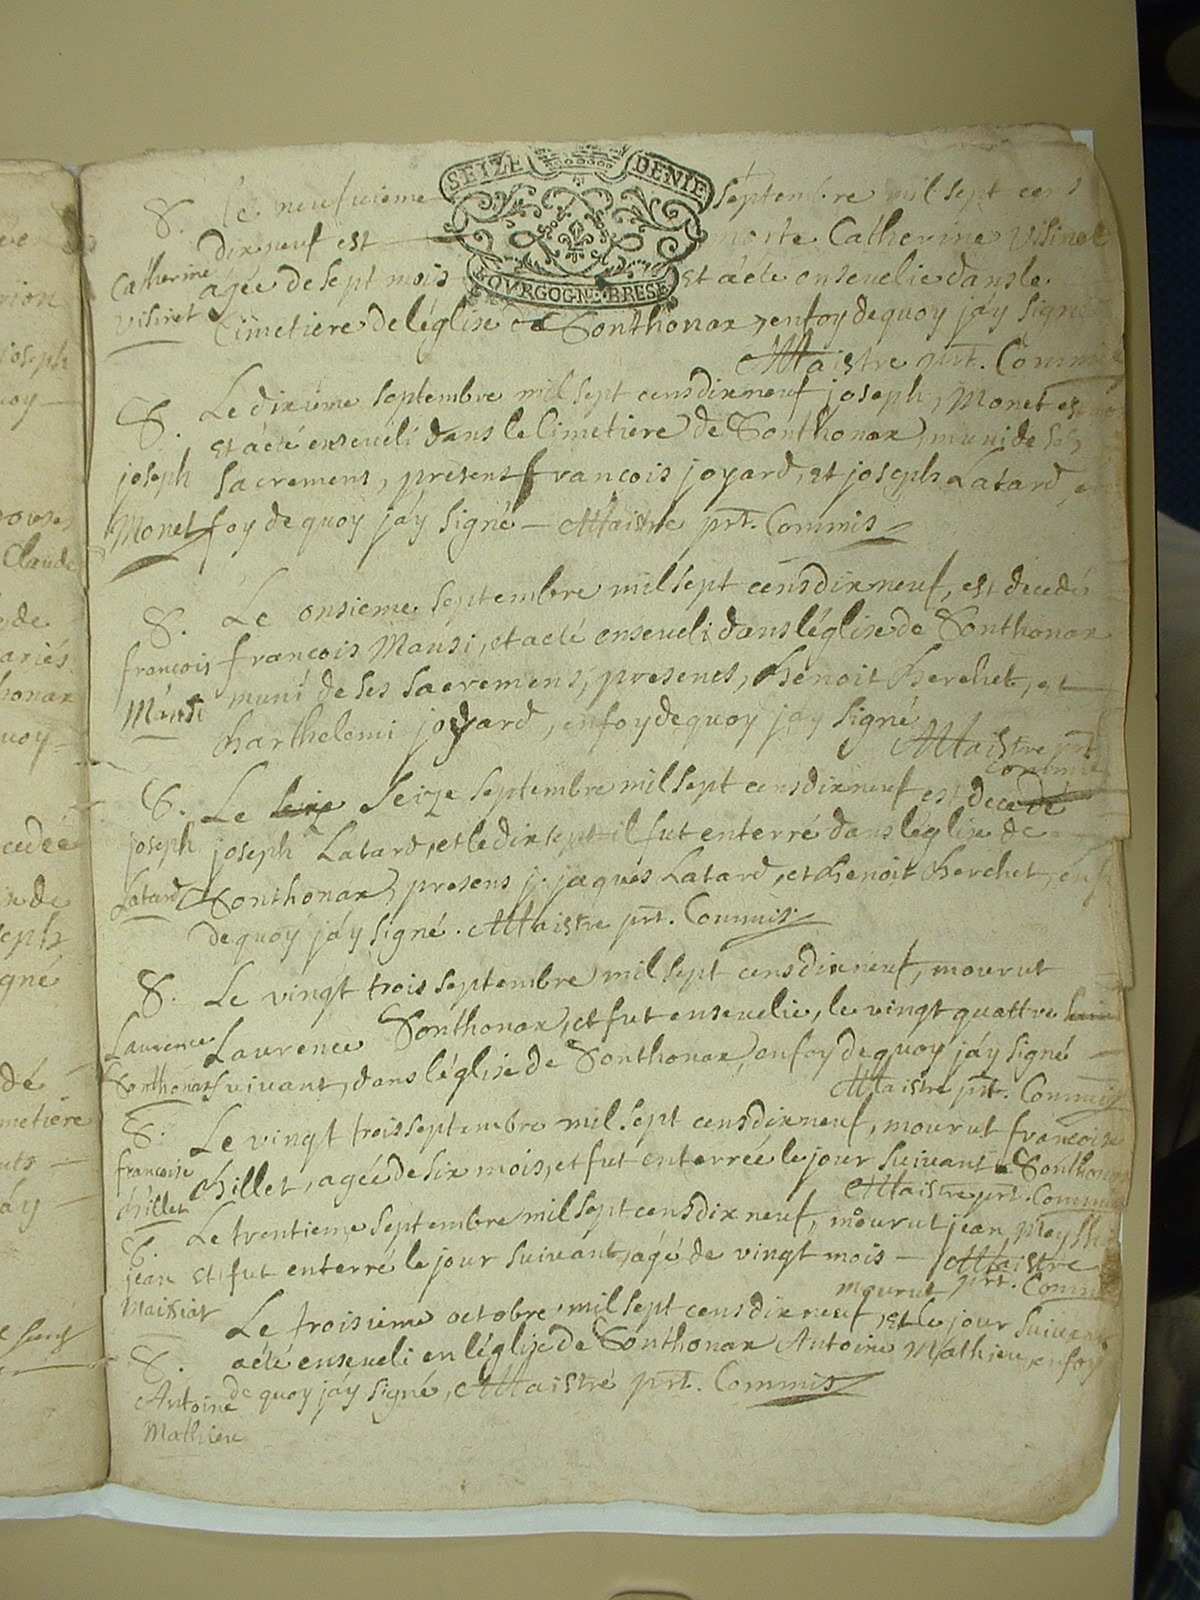 SEIZE DENIE
BOVRGOGNE BRESE
S. Le neufvieme septembre mil sept cens
dix neuf est morte Catherine Visinet
Catherine agée de sept mois et a été ensevelie dans le
Visinet Cimetiere de léglise de Sonthonax, en foy de quoy j'áy signé
Maistre prt. Commis
S. Le dixiéme septembre mil sept cens dix neuf joseph Monet est mo
et á eté enseveli dans le Cimetiere de Sonthonax, muni de ses
joseph sacremens, presens francois joyard, et joseph Latard, en
Monet foy de quoy jáy signé — Maistre prt. Commis
S. Le onsieme septembre mil sept cens dix neuf, est decedé
francois francois Mansi, et a eté enseveli dans léglise de Sonthonax
Mánsi muni de ses sacremens, presens, benoit berchet, et
barthelemi joyard, en foy de quoy jay signé
Maistre prt
commis
S. Le seize septembre mil sept cens dix neuf est decedé
joseph joseph Latard, et le dix sept il fut enterré dans léglise de
Latard Sonthonax, presens j. jaques Latard, et benoit berchet, en f
de quoy jáy signé. Maistre prt. Commis
S. Le vingt trois septembre mil sept cens dix neuf, mourut
Laurence Laurence Sonthonax, et fut ensevelie, le vingt quattre
Sonthonax suivant, dans léglise de Sonthonax, en foy de quoy jáy signé
Maistre prt. Commis
S. Le vingt trois septembre mil sept cens dix neuf, mourut francoise
francoise billet, agée de six mois, et fut enterrée le jour suivant a Sonthonax
billet Maistre prt. Commis
S. Le trentieme septembre mil sept cens dix neuf, mourut jean Meyssia
jean et fut enterré le jour suivant, agé de vingt mois — Maistre
Maissiat prt. Commis
mourut
Le troisieme octobre mil sept cens dix neuf, et le jour suivant
S. a eté enseveli en léglise de Sonthonax Antoine Mathieu, en foy
Antoine de quoy jáy signé, Maistre prt. Commis
Mathieu